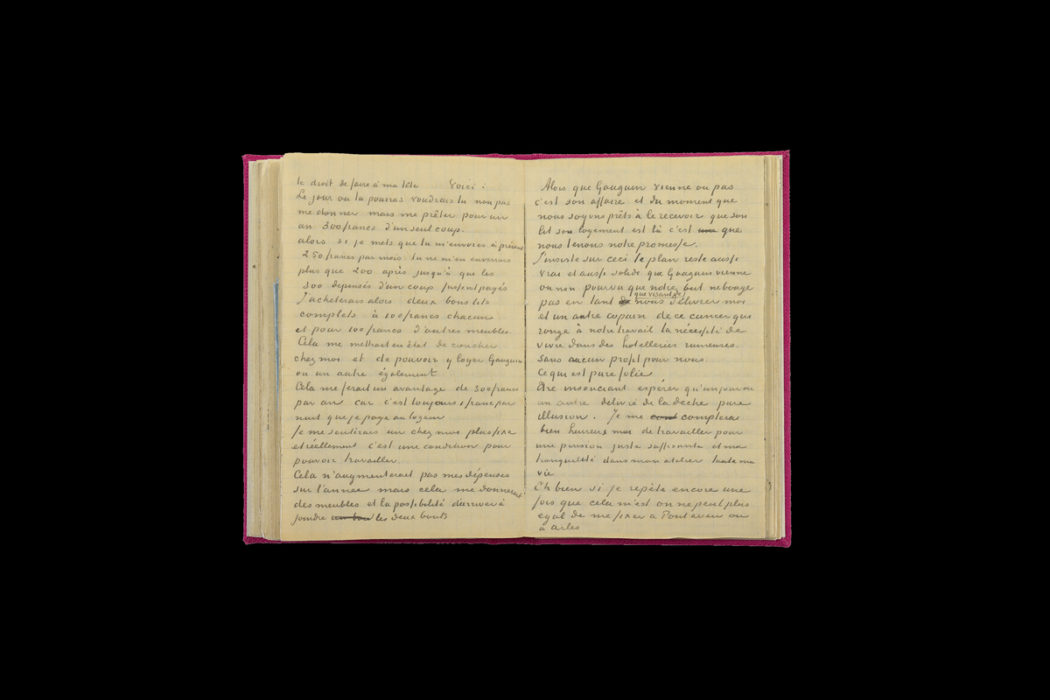 le droit de faire à ma tête Voici.
Le jour où tu pourras voudrais tu non pas
me donner mais me prêter pour un
an 300 francs d'un seul coup.
alors si je mets que tu m'envoies à présent
250 francs par mois tu ne m'en enverrais
plus que 200 après jusqu'à que les
300 dépensés d'un coup fussent payés
J'acheterais alors deux bons lits
complets à 100 francs chacuns
et pour 100 francs d'autres meubles.
Cela me mettrait en état de coucher
chez moi et de pouvoir y loger Gauguin
ou un autre également
Cela me ferait un avantage de 300 francs
par an car c'est toujours 1 franc par
nuit que je paye au logeur
Je me sentirais un chez moi plus fixe
et réellement c'est une condition pour
pouvoir travailler.
Cela n'augmenterait pas mes dépenses
sur l'année mais cela me donnerait
des meubles et la possibilité d'arriver à
joindre les deux bouts
Alors que Gauguin vienne ou pas
c'est son affaire et du moment que
nous soyons prêts à le recevoir que son
lit son logement est là c'est que
nous tenons notre promesse.
J'insiste sur ceci le plan reste aussi
vrai et aussi solide que Gauguin vienne
ou non pourvu que notre but ne bouge
pas en tant que visant de nous délivrer moi
et un autre copain de ce cancer qui
ronge à notre travail la nécessité de
vivre dans des hotelleries ruineuses.
Sans aucun profit pour nous.
Ce qui est pure folie
Etre insouciant espérer qu'un jour ou
un autre délivré de la dèche pure
illusion. Je me compterai
bien heureux moi de travailler pour
une pension juste suffisante et ma
tranquilité dans mon atelier toute ma
vie
Eh bien si je repète encore une
fois que cela m'est on ne peut plus
egal de me fixer a Pont aven ou
à arles